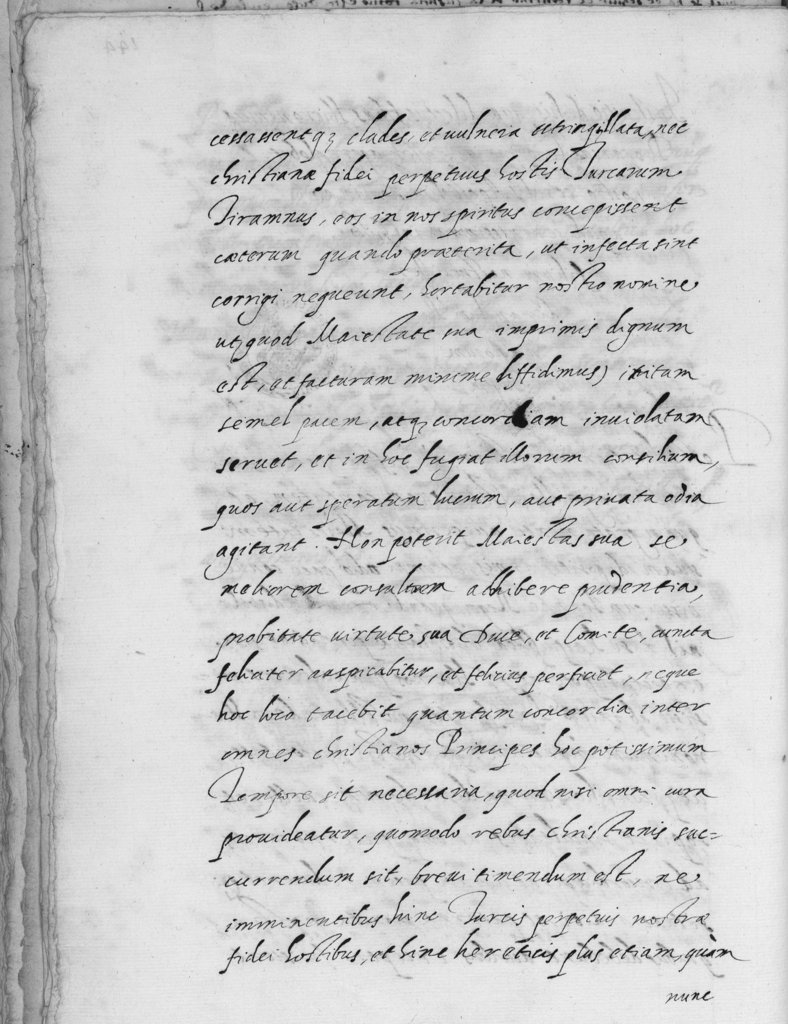 cessassentq; clades, et vulnera utring illata, nec
christianæ fidei perpetuus hostis Turcarum
Tirannus, eos in nos spiritus concepissent
cæterum quando præterita, ut infecta sint
corrigi nequeunt, hortabitur nostro nomine
ut, quod Maiestate sua imprimis dignum
est, et facturam minime diffidimus) initam
semel pacem, atq; concordiam inviolatam
servet, et in hoc fugiat illorum consilium,
quos aut speratum lucrum, aut privata odia
agitant. Non poterit Maiestas sua se
meliorem consultorem adhibere prudentia,
probitate virtute sua Duce, et Comite, cuncta
feliciter auspicabitur, et felicius perficiet, neque
hoc loco tacebit quantum concordia inter
omnes christianos Principes hoc potissimum
Tempore sit necessaria, quod nisi omni cura
provideatur, quomodo rebus christianis suc=
currendum sit, brevi timendum est, ne
imminentibus hinc Turcis perpetuis nostræ
fidei hostibus, et hinc hereticis plus etiam, quàm
nunc